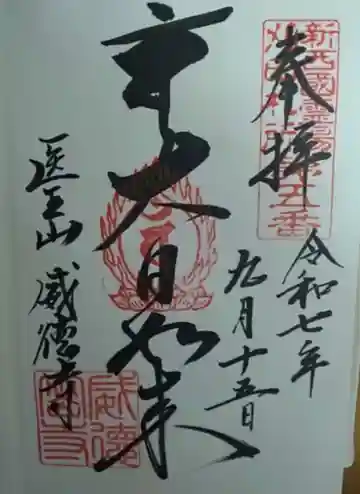 新西國霊場
第五番
奉拝
令和七年
九月十五日
大日如来
医王山
威徳寺
威徳